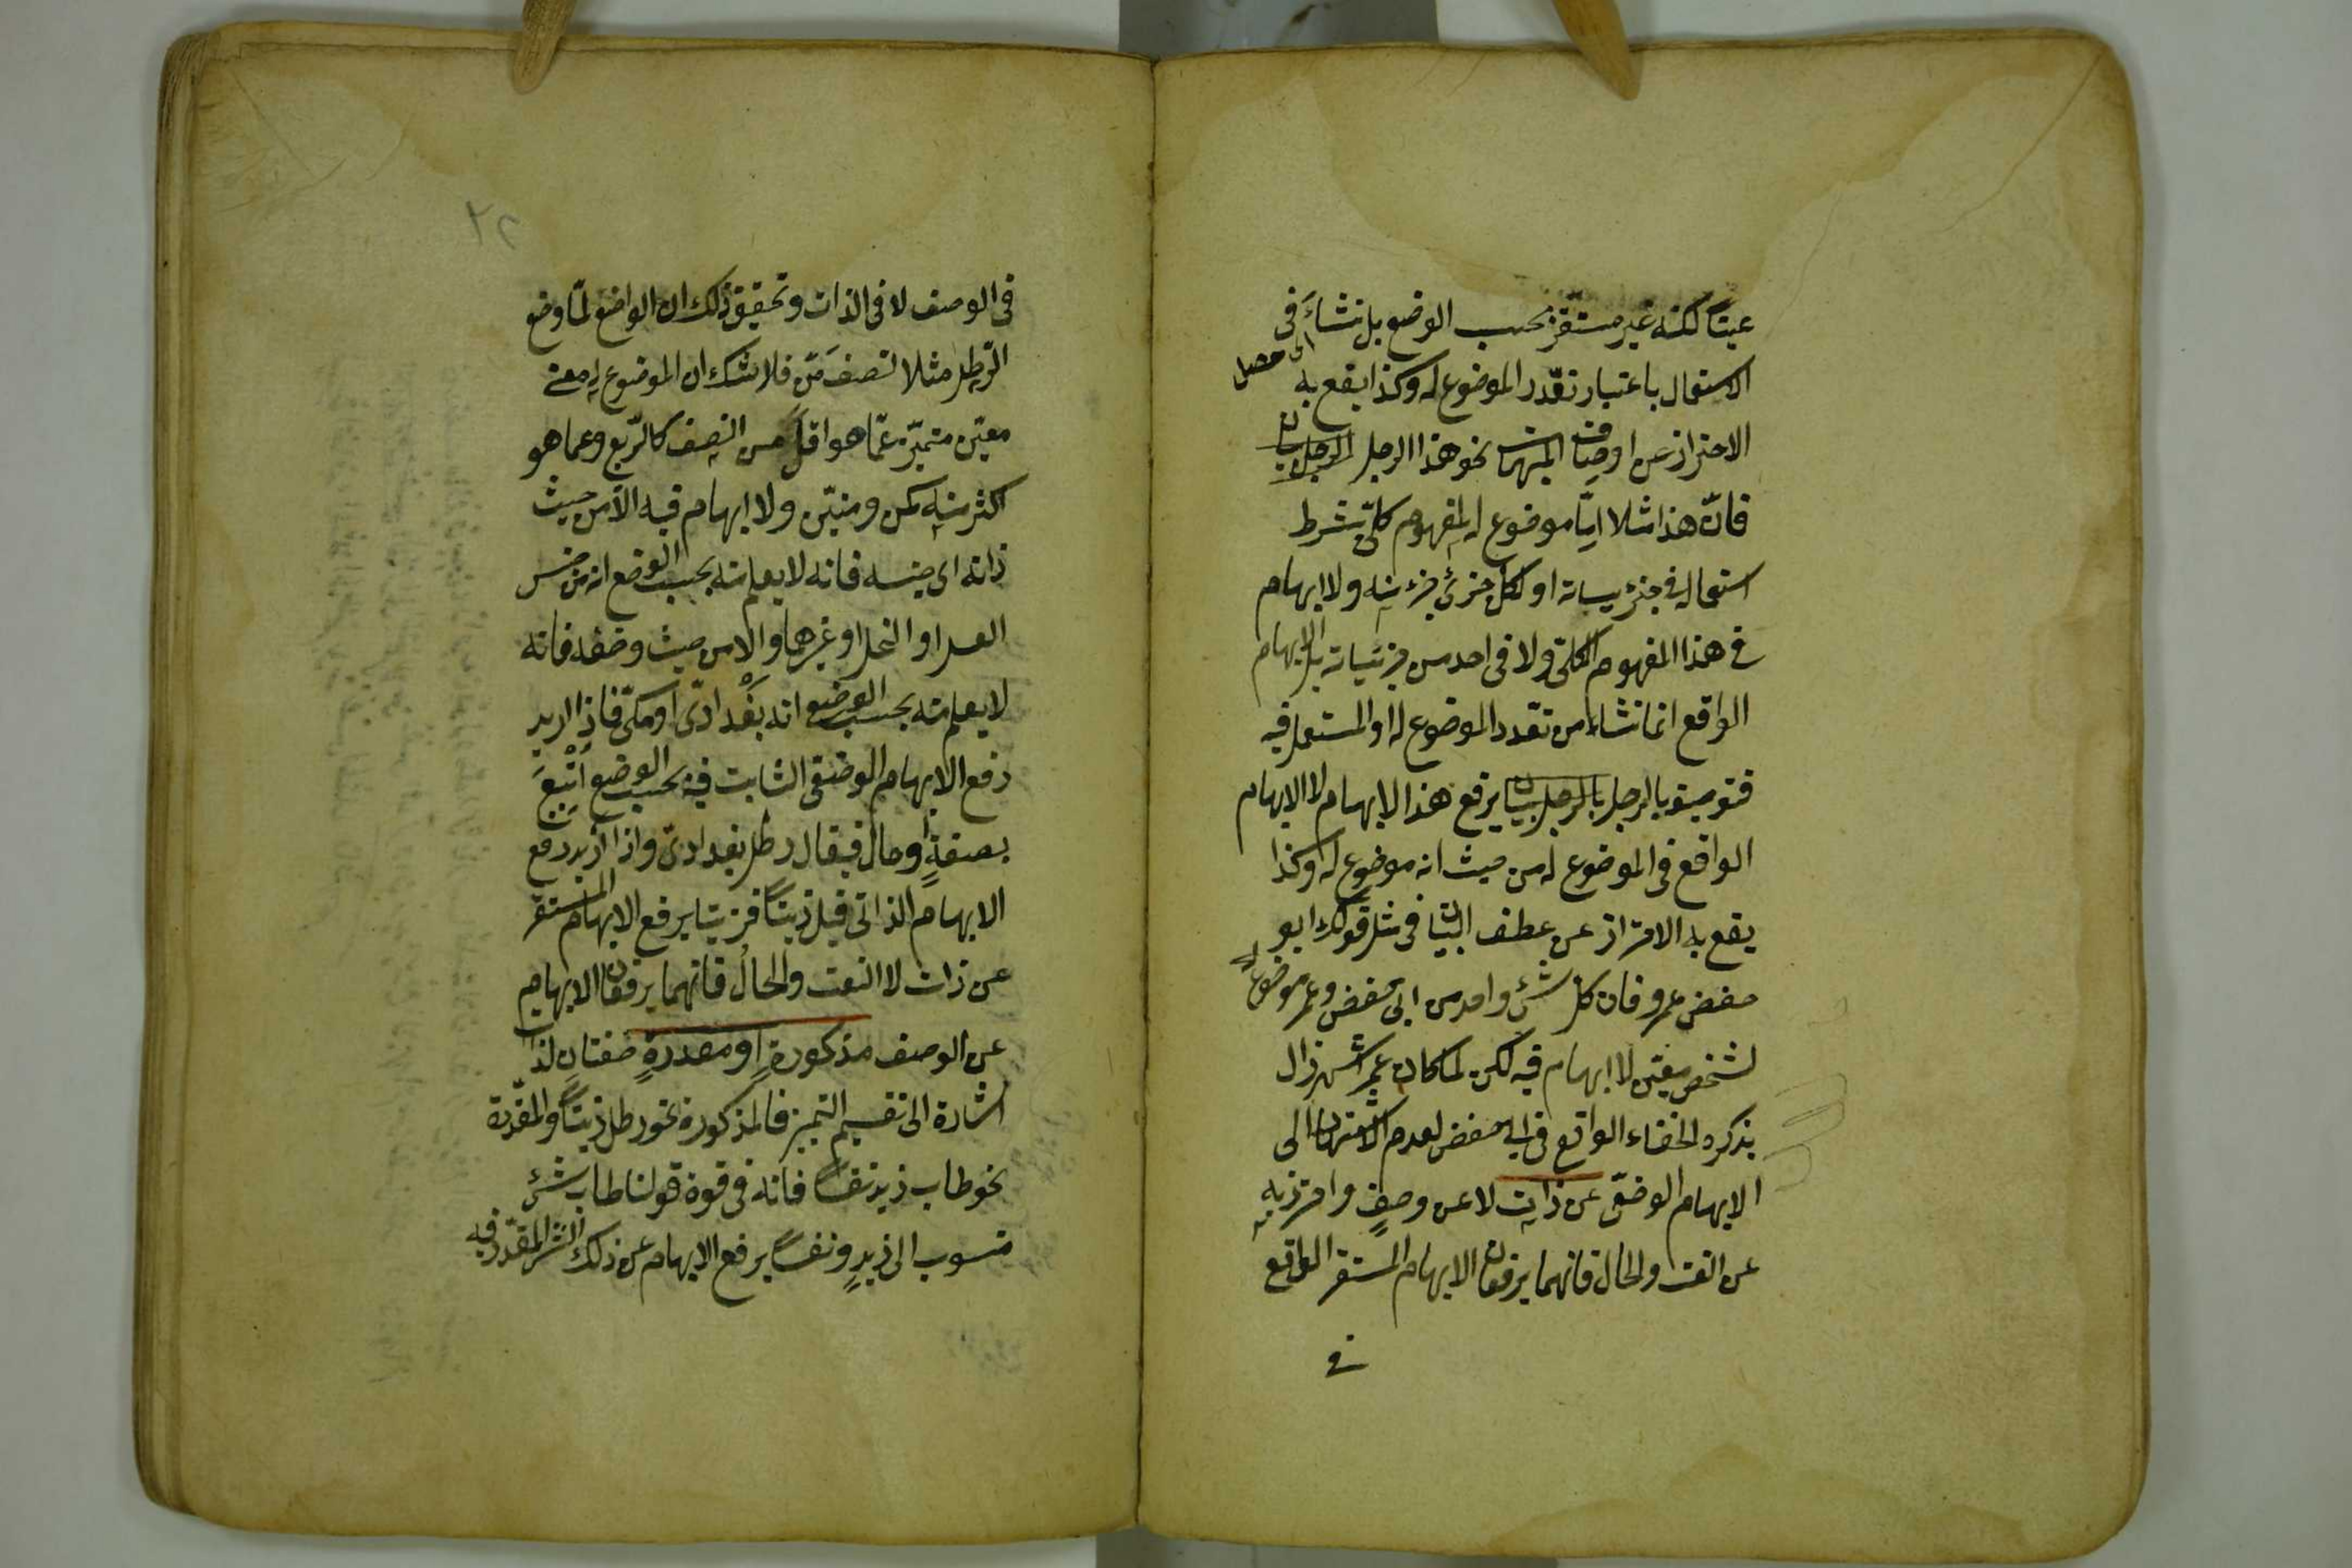 عينا لكنه غير مستقر بحسب الوضع بل نشاء فى
الاستعمال باعتبار تعدد الموضوع له وكذا يقع به
اى حصل
الاحتراز عن اوصاف المبهمات نحو هذا الرجل
فان هذا مثلا اما موضوع لمفهوم كلى بشرط
استعماله فى جزئياته او لكل جزئى جزئى منه ولا ابهام
فى هذا المفهوم الكلى ولا فى احد من جزئياته بل الابهام
الواقع انما نشاء من تعدد الموضوع له او المستعمل فيه
فتوصيفه بالرجل يرفع هذا الابهام لا الابهام
الواقع فى الموضوع له من حيث انه موضوع له وكذا
يقع به الاحتراز عن عطف البيان فى مثل قولك ابو
حفص عمر فان كل شئ واحد من ابى حفص وعمر موضوع
لشخص معين لا ابهام فيه لكن لما كان عمر اشهر زال
بذكره الخفاء الواقع فى ابى حفص لعدم الاشتهار الى
الابهام الوضعى عن ذات لا عن وصف واحترز به
عن النعت والحال فانهما يرفعان الابهام المستقر الواقع
فى
٢٢
فى الوصف لا فى الذات وتحقيق ذلك ان الواضع لما وضع
الرطل مثلا لنصف من فلا شك ان الموضوع له معنى
معين متميز عما هو اقل من النصف كالربع وعما هو
اكثر منه كمن ومنين ولا ابهام فيه الا من حيث
ذاته اى جنسه فانه لا يعلم منه بحسب الوضع انه من جنس
العسل او الخل او غيرهما والا من حيث وصفه فانه
لا يعلم منه بحسب الوضع انه بغدادى او مكى فاذا اريد
رفع الابهام الوصفى الثابت فيه بحسب الوضع اتبع
بصفة او حال فيقال رطل بغدادى واذا اريد رفع
الابهام الذاتى قيل زيتا فزيتا يرفع الابهام المستقر
عن ذات لا النعت والحال فانهما يرفعان الابهام
عن الوصف مذكورة او مقدرة صفتان لذات
اشارة الى تقسيم التميز فالمذكورة نحو رطل زيتا والمقدرة
نحو طاب زيد نفسا فانه فى قوة قولنا طاب شئ
منسوب الى زيد ونفسا يرفع الابهام عن ذلك الشئ المقدر فيه